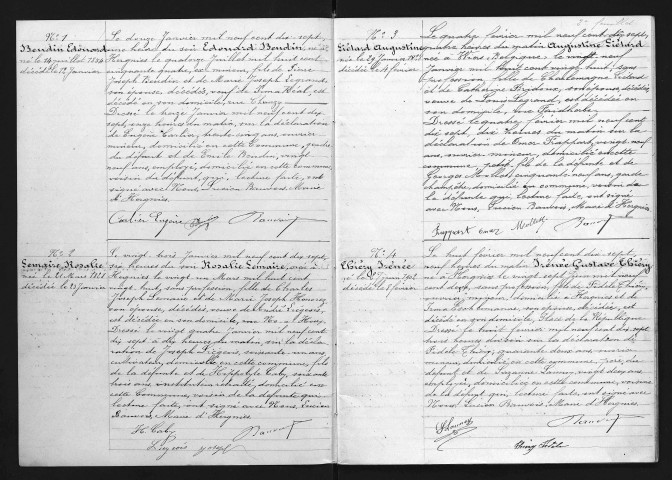 N° 1
Boudin Edouard
né le 14 juillet 1854
décédé le 12 janvier
Le douze Janvier mil neuf cent dix sept,
une heure du soir Edouard Boudin, né à
Hergnies le quatorze Juillet mil huit cent
cinquante quatre, ex mineur, fils de Pierre
Joseph Boudin et de Marie Joseph Legrand
son épouse, décédés, veuf de
décédé en son domicile, rue
Dressé le treize Janvier mil neuf cent dix
sept, onze heures du matin, sur la déclaration
de Eugène Carlier, trente cinq ans, ouvrier
mineur, domicilié en cette Commune, gendre
du défunt et de Emile Boudin, vingt
neuf ans, employé, domicilié en cette commune
voisin du défunt, qui, lecture faite, ont
signé avec Nous, Lucien Bauvois, Maire
d'Hergnies.
Carlier Eugène
N° 2
Lemaire, Rosalie
née le 21 Mars 1828
décédée le 23 janvier
Le vingt trois Janvier mil neuf cent dix sept,
six heures du soir Rosalie Lemaire, née à
le vingt Mars mil huit cent
vingt huit, sans profession, fille de Charles
Joseph Lemaire et de Marie Joseph
son épouse, décédés, veuve de André Liégeois,
est décédée en son domicile, rue
Dressé le vingt quatre Janvier mil neuf cent
dix sept à dix heures du matin, sur la décla-
ration de Joseph Liégeois, soixante un ans
cultivateur, domicilié en cette commune, fils
de la défunte et de Hippolyte Caby, soixante
trois ans, instituteur retraité, domicilié en
cette Commune, voisin de la défunte qui
lecture faite, ont signé avec Nous, Lucien
Bauvois, Maire d'Hergnies.
H. Caby
Liégeois Joseph
N° 3
Liétard Augustine
née le 29 Janvier 1828
décédée le 4 février
Le quatre février mil neuf cent dix sept,
quatre heures du matin Augustine Liétard
née à (Belgique) le vingt neuf
Janvier mil huit cent vingt huit, sans
profession, fille de Charlemagne Liétard
et de Catherine son épouse, décédés,
veuve de Louis Legrand, est décédée en
son domicile, rue
Dressé le quatre février mil neuf cent
dix sept, dix heures du matin sur la
déclaration de Omer Frappart, vingt neuf
ans, ouvrier mineur, domicilié en cette
commune, petit fils de la défunte et de
Georges cinquante neuf ans, garde
champêtre, domicilié en commune, voisin de
la défunte qui, lecture faite, ont signé
avec Nous, Lucien Bauvois, Maire d'Hergnies.
Frappart Omer
N° 4
Thiéry Irénée
décédé le 8 février
Le huit février mil neuf cent dix sept
neuf heures du matin Irénée Gustave Thiéry
né à Hergnies le vingt sept Juin mil neuf
cent deux, sans profession, fils de Fidèle Thiéry,
ouvrier mineur, domicilié à Hergnies et de
son épouse, décédée, est
décédé en son domicile, Place de la République
Dressé le huit février mil neuf cent dix sept,
trois heures du soir sur la déclaration de
Fidèle Thiéry, quarante deux ans ouvrier
mineur, domicilié en cette commune père du
défunt et de Suzanne Lannoy, vingt deux ans
employée, domiciliée en cette commune, voisine
du défunt qui, lecture faite, ont signé avec
Nous, Lucien Bauvois, Maire d'Hergnies.
S. Lannoy
Thiéry Fidèle